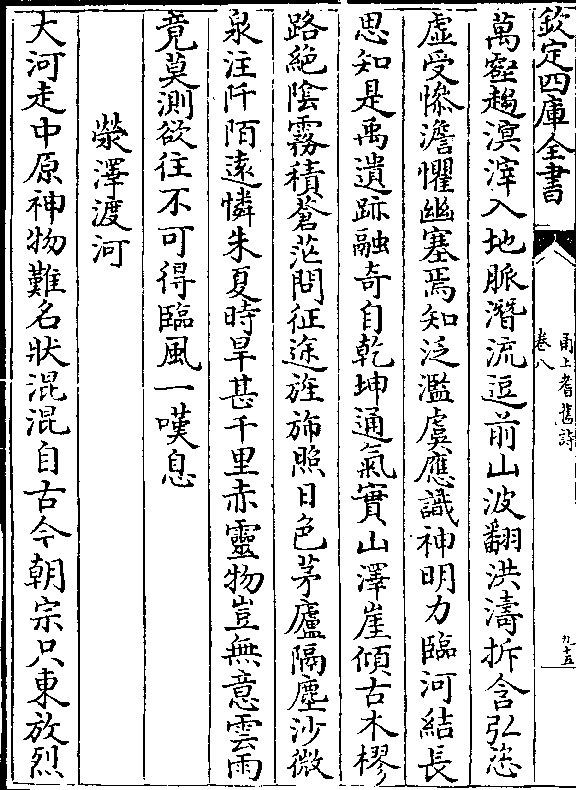 欽定四庫全書
甬上耆舊詩
卷八
九十五
萬壑趨溟滓入地脈潛流逗前山波翻洪濤拆含弘恣
虛受慘澹懼幽塞焉知泛濫虞應識神明力臨河結長
思知是禹遺跡融奇自乾坤通氣實山澤崖傾古木樛
路絶陰霧積蒼茫問征途旌斾照日色茅廬隔塵沙微
泉注阡陌遠憐朱夏時旱甚千里赤靈物豈無意雲雨
竟莫測欲往不可得臨風一嘆息
滎澤渡河
大河走中原神物難名狀混混自古今朝宗只東放烈